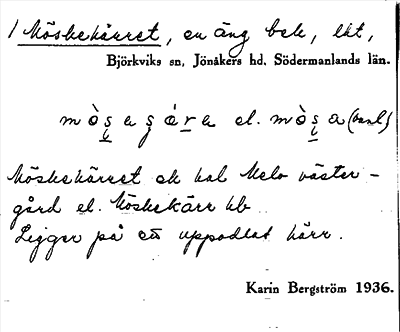 1 Möskekärret, en äng bek, ekt,
Björkviks sn, Jönåkers hd, Södermanlands län.
el. (vanl)
Möskekärret ek hal Melo väster-
gård el. Möskekärr hb
Ligger på ett uppodlat kärr.
Karin Bergström 1936.